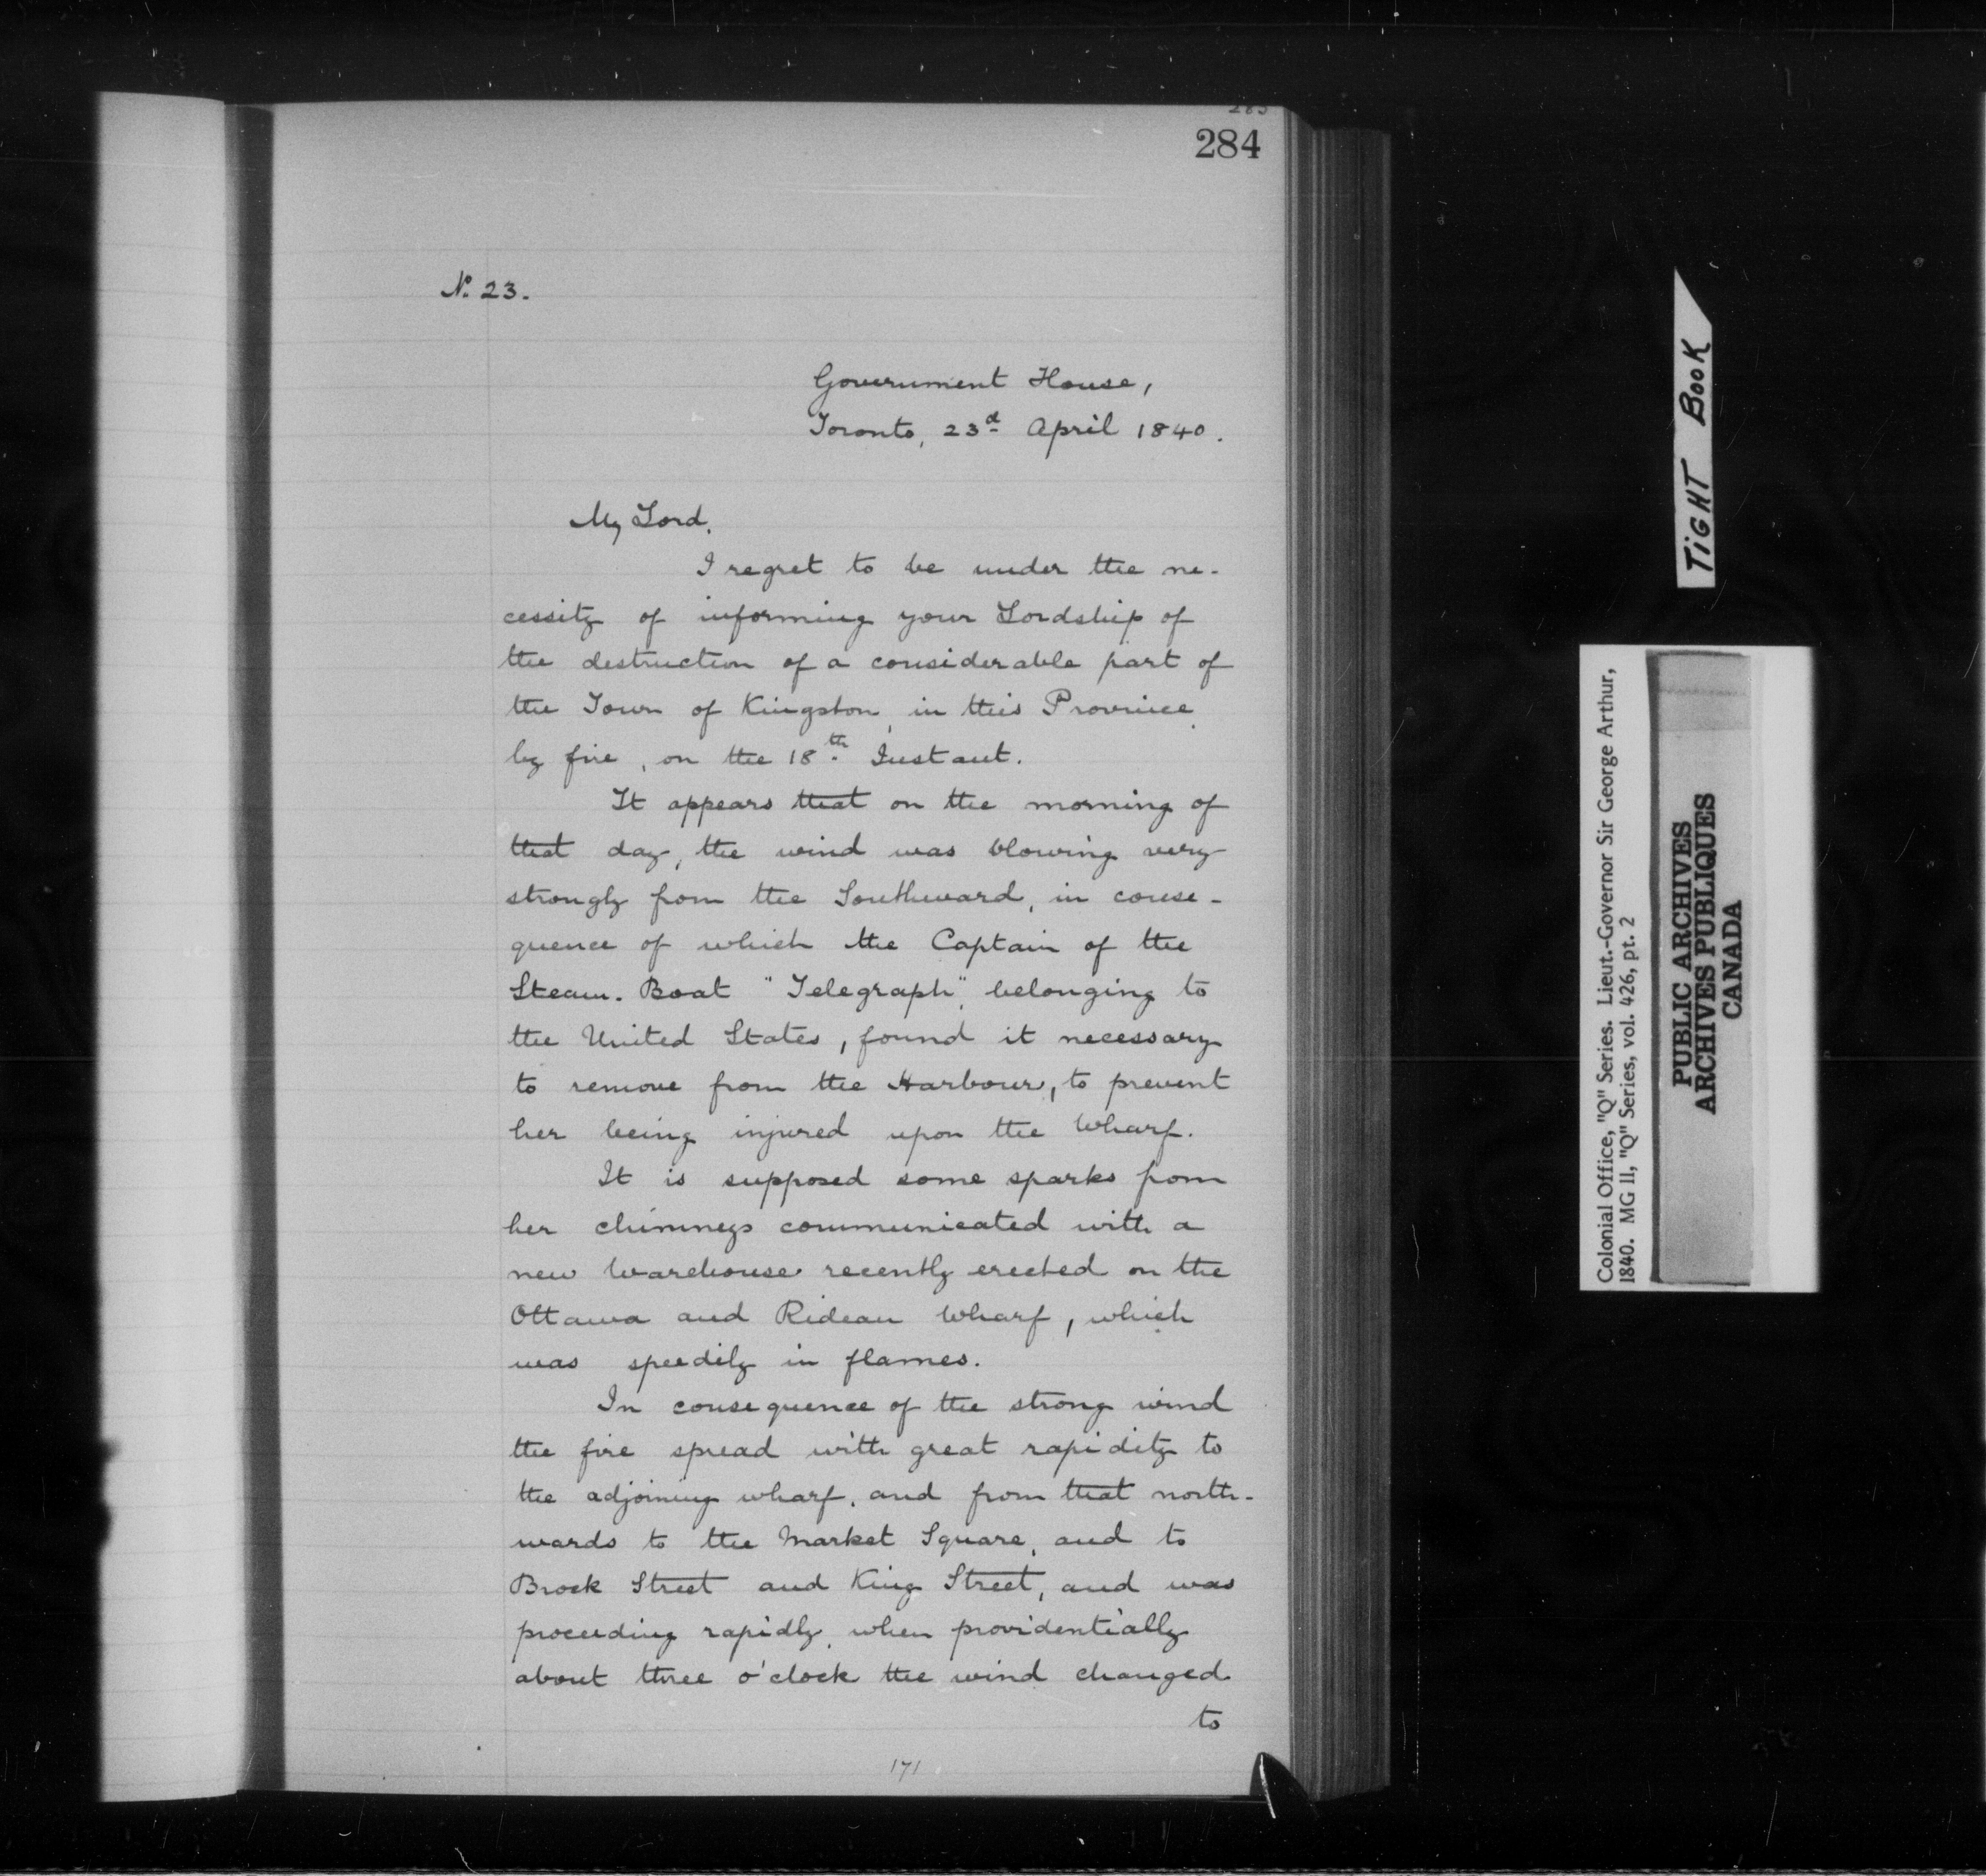 284
No. 23.
Government House,
Toronto, 23d April 1840.
My Lord,
I regret to be under the ne-
cessity of informing your Lordship of
the destruction of a considerable part of
the Town of Kingston, in this Province
by fire, on the 18th. Instant.
It appears that on the morning of
that day, the wind was blowing very
strongly from the Southward, in conse-
quence of which the Captain of the
Steam. Boat "Telegraph", belonging to
the United States, found it necessary
to remove from the Harbour, to prevent
her being injured upon the Wharf.
It is supposed some sparks from
her chimneys communicated with a
new Warehouse recently erected on the
Ottawa and Rideau Wharf, which
was speedily in flames.
In consequence of the strong wind
the fire spread with great rapidity to
the adjoining wharf, and from that north-
wards to the Market Square, and to
Brock Street and King Street, and was
proceeding rapidly, when providentially
about three o'clock the wind changed
to
171
TIGHT BOOK
Colonial Office, "Q" Series. Lieut.-Governor Sir George Arthur,
1840. MG 11, "Q" Series, vol. 426, pt. 2
PUBLIC ARCHIVES
ARCHIVES PUBLIQUES
CANADA